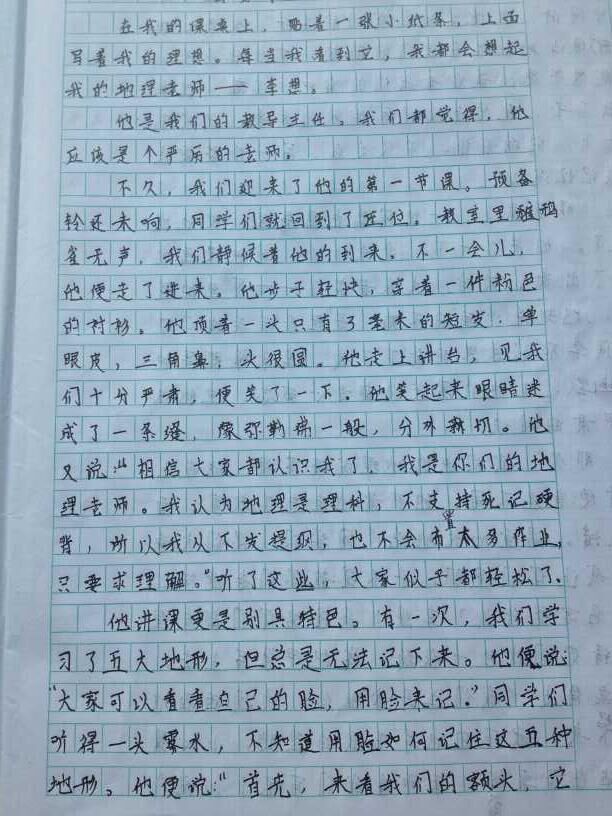 在我的课桌上，贴着一张小纸条，上面
写着我的理想。每当我看到它，我都会想起
我的地理老师——李想。
他是我们的教导主任。我们都觉得，他
应该是个严厉的老师。
不久，我们迎来了他的第一节课。预备
铃还未响，同学们就回到了座位。教室里鸦
雀无声，我们静候着他的到来。不一会儿，
他便走了进来。他步子轻快，穿着一件粉色
的衬衫。他顶着一头只有3毫米的短发，单
眼皮，三角鼻，头很圆。他走上讲台，见我
们十分严肃，便笑了一下。他笑起来眼睛迷
成了一条缝，像弥勒佛一般，分外亲切。他
又说：“相信大家都认识我了，我是你们的地
理老师。我认为地理是理科，不支持死记硬
背，所以我以下发提纲，也不会布置太多作业，
只要求理解。”听了这些，大家似乎都轻松了。
他讲课更是别具特色。有一次，我们学
习了五大地形，但总是无法记下来。他便说：
“大家可以看看自己的脸，用脸来记。”同学们
听得一头雾水，不知道用脸如何记住这五种
地形。他便说：“首先，来看我们的额头，它